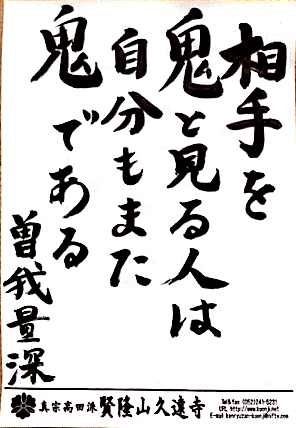 相手を
鬼と見る人は
自分もまた
鬼である
曽我量深
真宗高田派 賢隆山久遠寺
Tel&fax (052)241-5231
URL http://www.kuonji.net